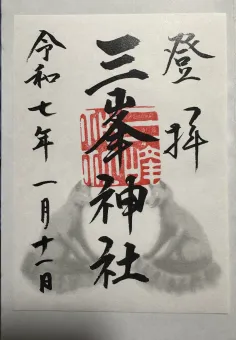 登拝
三峯神社
令和七年 一月十一日